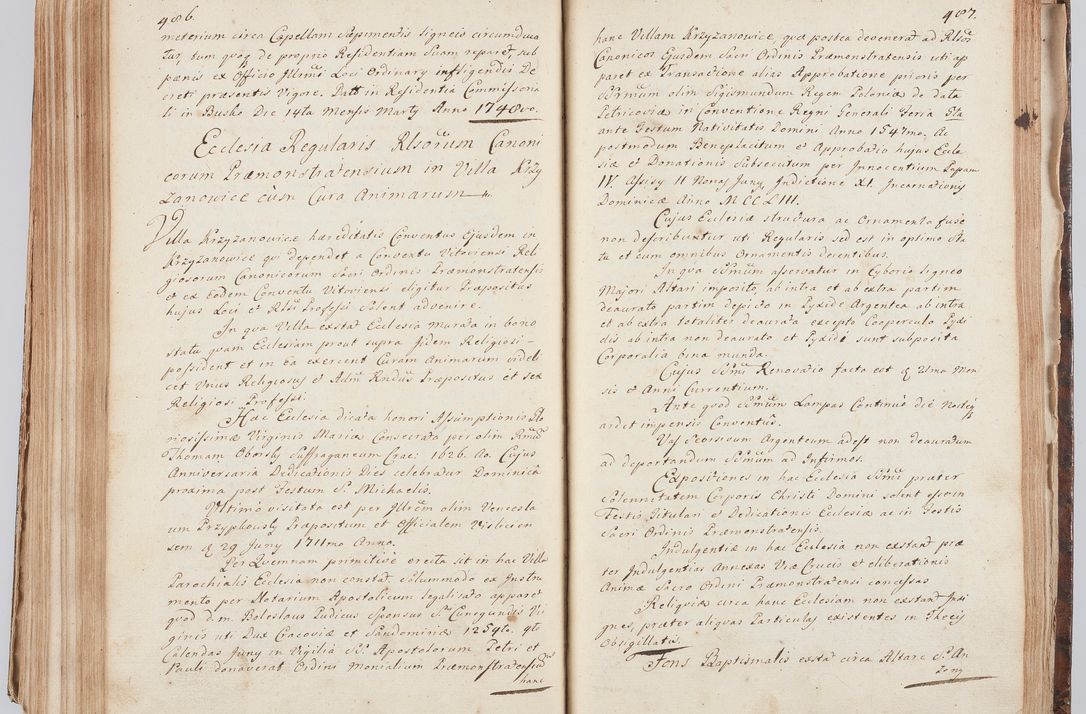 486.
meterium circa Capellam Sæpimentis ligneis circumduca
tur, tum quoq de proprio Residentiam Suam reparet, sub
pænis ex Officio Illrmi Loci Ordinary infligendis De
creti præsentis Vigore. Datt in Residentia Commissoria
li in Busko Die 14ta Mensis Marty Anno 1748vo.
Ecclesia Regularis Rlsorum Canoni
corum Præmonstratensium in Villa Krzy
zanowice cum Cura Animarum
Villa Krzyzanowice hæreditatis Conventus Ejusdem in
Krzyzanowice qui dependet a Conventu Vitoviensi Reli
giosorum Canonicorum Sacri Ordinis Præmonstratensis
et ex eodem Conventu Vitoviensi eligitur Præpositus
hujus Loci et Rlsi Professi Solent advenire.
In qva Villa exstat Ecclesia murata in bono
statu qvam Ecclesiam prout supra Jidem Religiosi
possident et in Ea exercent Curam Animarum videli
cet Unus Religiosus et Adm Rndus Præpositus et sex
Religiosi Professi.
Hæc Ecclesia dicata honori Assumptionis Glo
riosissimæ Virginis Mariæ Consecrata per olim Rmu
Thomam Oborsky Suffraganeum Crac: 1626. Ao. Cujus
Anniversaria Dedicationis Dies celebratur Dominica
proxima post Festum S. Michaelis.
Ultimo visitata est per Illrem olim Vencesla
um Przypkowsky Præpositum et Officialem Vislicien
sem q 29 Juny 1711mo Anno.
Per Qvemnam primitive erecta sit in hac Villa
Parochialis Ecclesia non constat, solummodo ex Instru
mento per Notarium Apostolicum legalisato apparet
qvod d.m. Boleslaus Pudicus Sponsus Stæ Conegundis Vir
ginis uti Dux Cracoviæ et Sandomiriæ 1254to. 9to
Calendas Juny in Vigilia SS. Apostolorum Petri et
Pauli donaverat Ordini Monialium Præmonstratensium
hanc
487.
hanc Villam Krzyzanowice, qvæ postea devenerat ad Rlsos
Canonicos Ejusdem Sacri Ordinis Præmonstratensis uti ap
paret ex Transactione alias Approbatione prioris per
Sermum olim Sigismundum Regem Poloniæ de data
Petricoviæ in Conventione Regni Generali Feria 5ta
ante Festum Nativitatis Domini Anno 1547mo. Ac
postmodum Beneplacitum et Approbatio hujus Eccle
siæ et Donationis Subsecutum per Innocentium Papam
IV. Assisy II Nonas Juny, Indictione XI. Incarnationis
Dominicæ Anno MCCLIII.
Cujus Ecclesiæ structura ac Ornamenta fuse
non describuntur uti Regularis sed est in optimo Sta
tu et cum omnibus Ornamentis decentibus.
In qva SSmum asservatur in Cyborio ligneo
Majori Altari imposito, ab intra et ab extra partim
deaurato partim depicto in Pyxide Argentea ab intra
et ab extra totaliter deaurata excepto Cooperculo Pyxi
dis ab intra non deaurato et Pyxidi sunt subposita
Corporalia bina munda.
Cujus SSmi Renovatio facta est q Una Men
sis et Anni Currentium.
Ante qvod SSmum Lampas Continuo die Noctuq
ardet impensis Conventus.
Vas Seorsivum Argenteum adest non deauratum
ad deportandum SSmum ad Infirmos.
Expositiones in hac Ecclesia SSmi præter
Solennitatem Corporis Christi Domini solent esse in
Festis Titulari et Dedicationis Ecclesiæ ac in Festis
Sacri Ordinis Præmonstratensis.
Indulgentiæ in hac Ecclesia non exstant præ
ter Indulgentias Annexas Viæ Crucis et eliberationis
Animæ Sacro Ordini Præmonstratensi concessas
Reliqviæ circa hanc Ecclesiam non exstant Insi
gnes, præter aliqvas Particulas existentes in Thecis
Obsigillatis.
Fons Baptismalis exstat circa Altare S. An
tonij